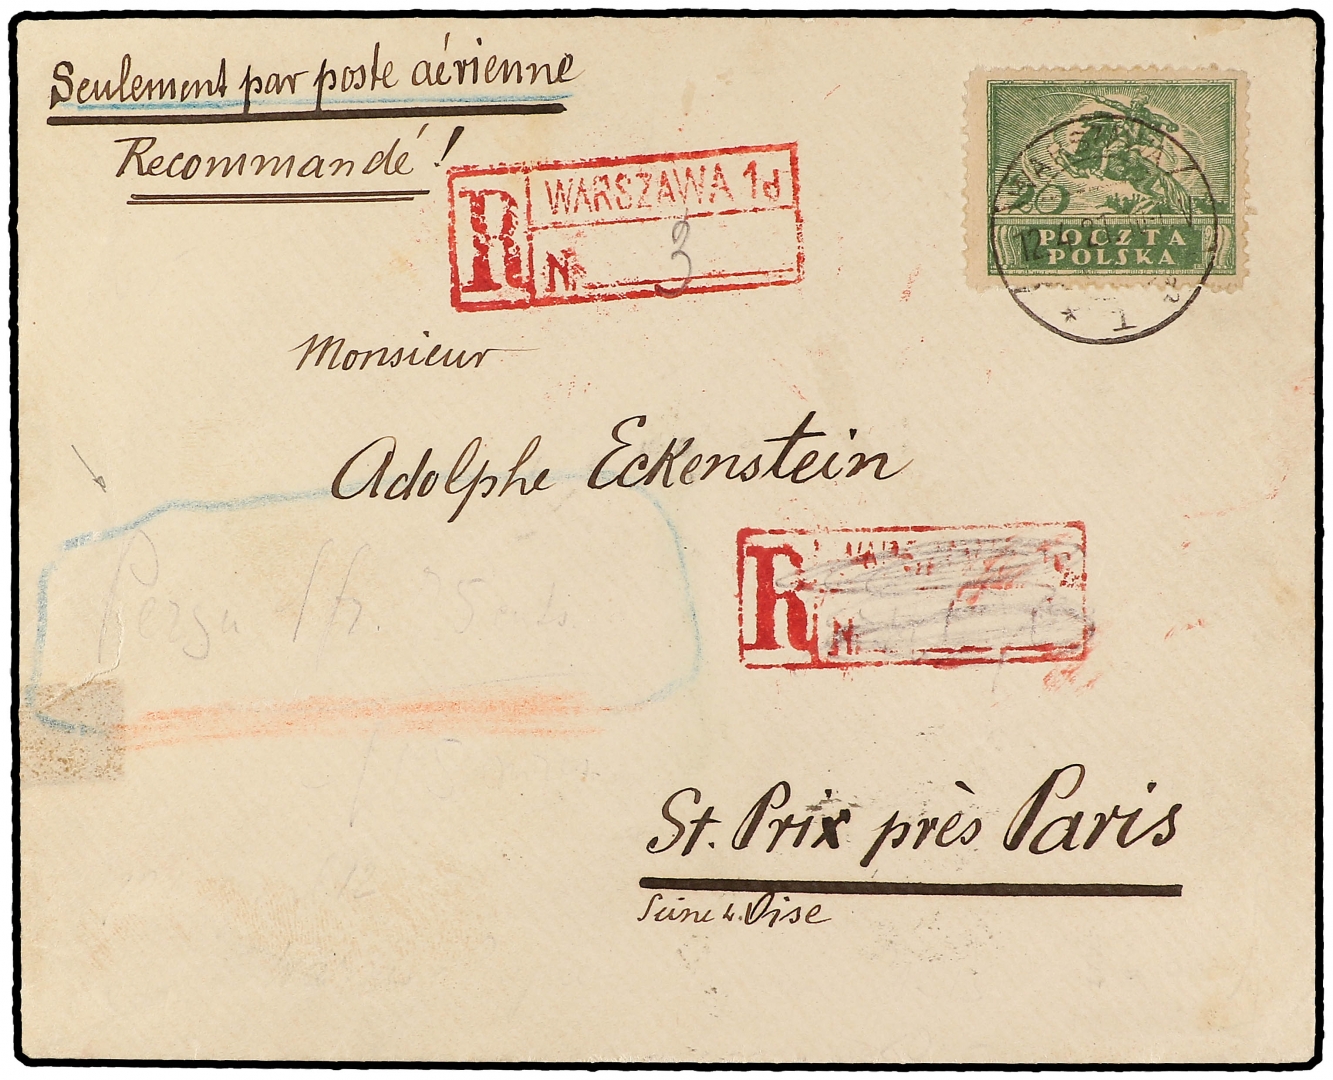 Seulement par poste aérienne
Recommandé!
R WARSZAWA 1d
N 3
WARSZAWA
POCZTA
POLSKA
* 1
Monsieur
Adolphe Eckenstein
R
N
St. Prix près Paris
Seine & Oise